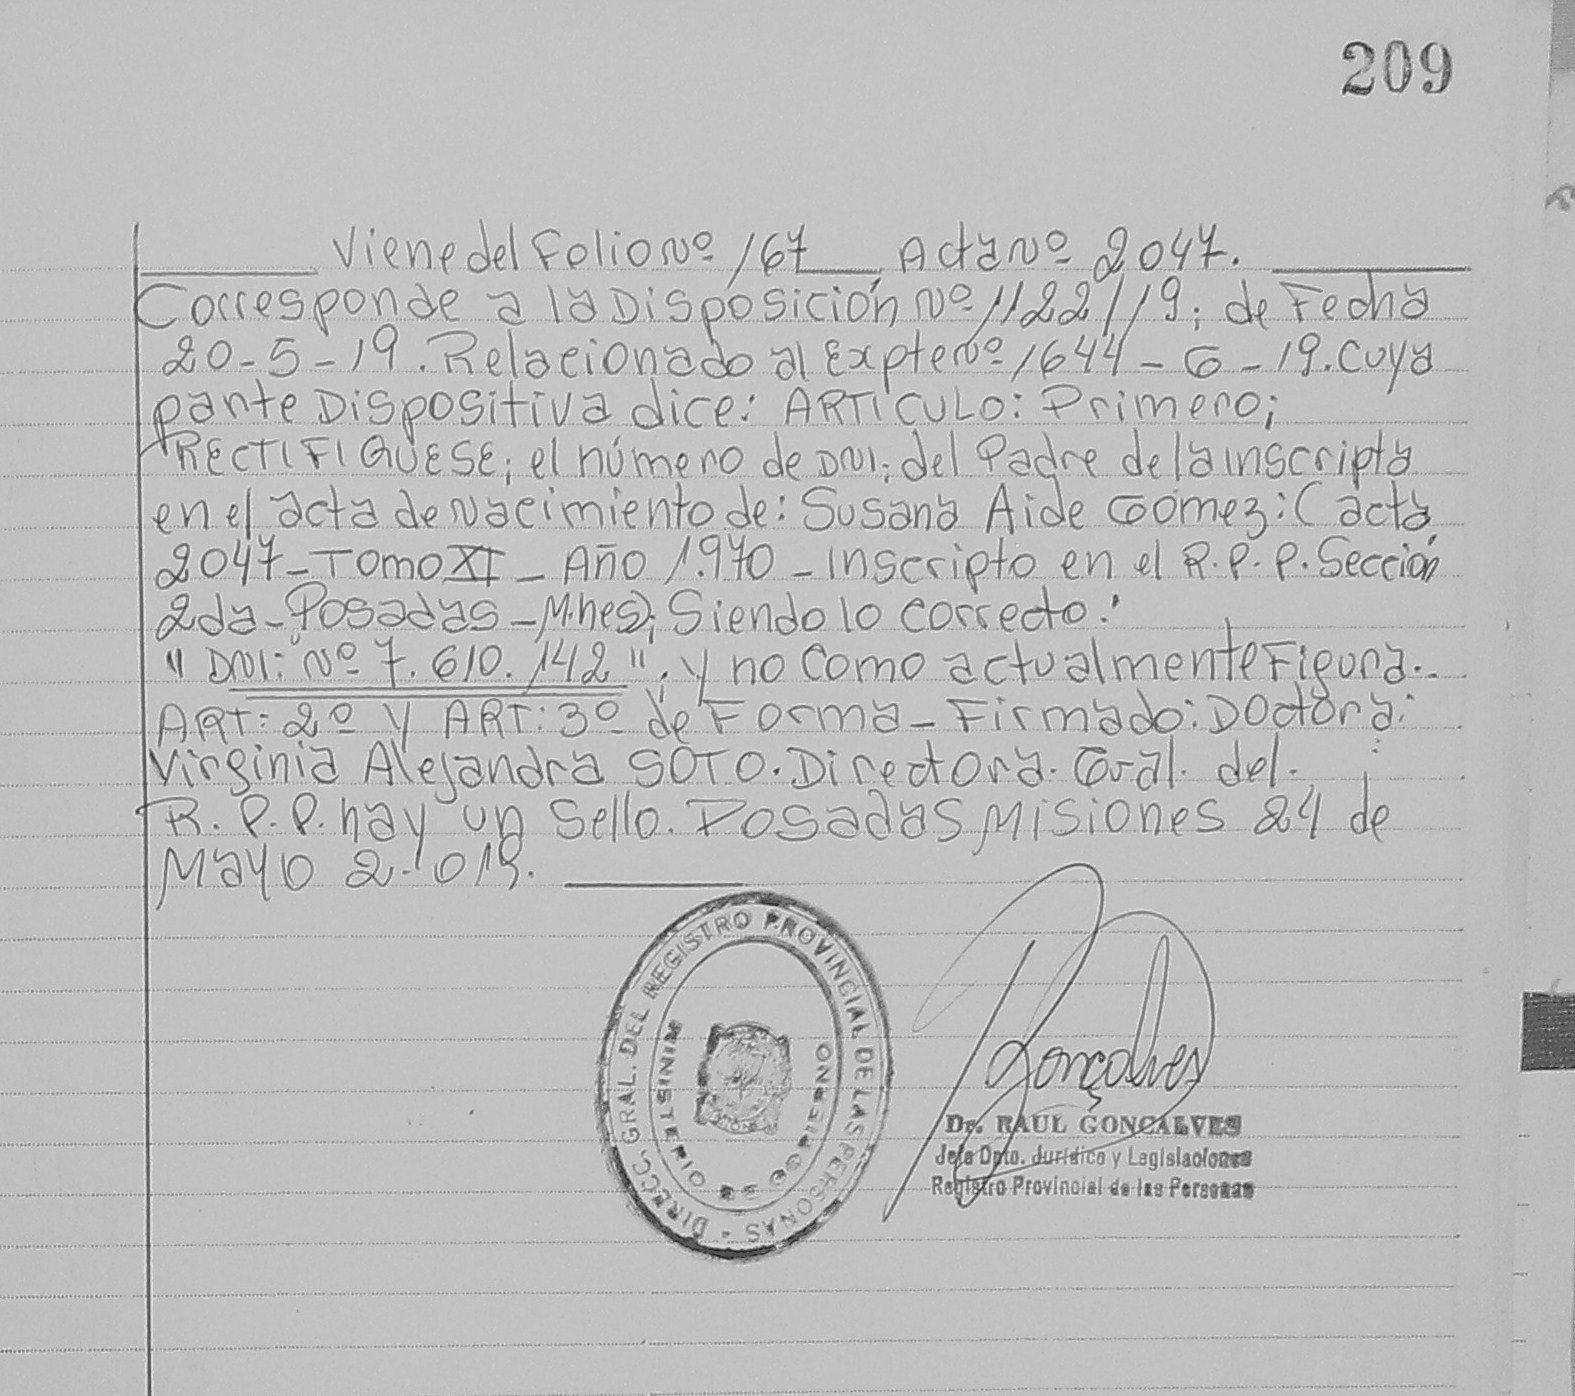 209
Viene del Folio Nº 167 Acta Nº 2047.
Corresponde a la Disposición Nº 1122/19; de Fecha
20-5-19. Relacionado al Expte Nº 1644-G-19. Cuya
parte Dispositiva dice: ARTICULO: Primero;
RECTIFIQUESE; el número de DNI; del Padre de la inscripta
en el acta de Nacimiento de: Susana Aide Gómez: (acta
2047-Tomo XI-Año 1.970-Inscripto en el R.P.P. Sección
2da-Posadas-M.nes); Siendo lo correcto:
"DNI: Nº 7.610.142". y no como actualmente Figura.-
ART: 2º y ART: 3º de Forma-Firmado: Doctora:
Virginia Alejandra SOTO. Directora. Gral. del.
R.P.P. hay un sello. Posadas Misiones 24 de
Mayo 2.019.
DIRECC. GRAL. DEL REGISTRO PROVINCIAL DE LAS PERSONAS -
MINISTERIO DE GOBIERNO
Gonçalves
Dr. RAUL GONÇALVES
Jefe Dpto. Jurídico y Legislaciones
Registro Provincial de las Personas